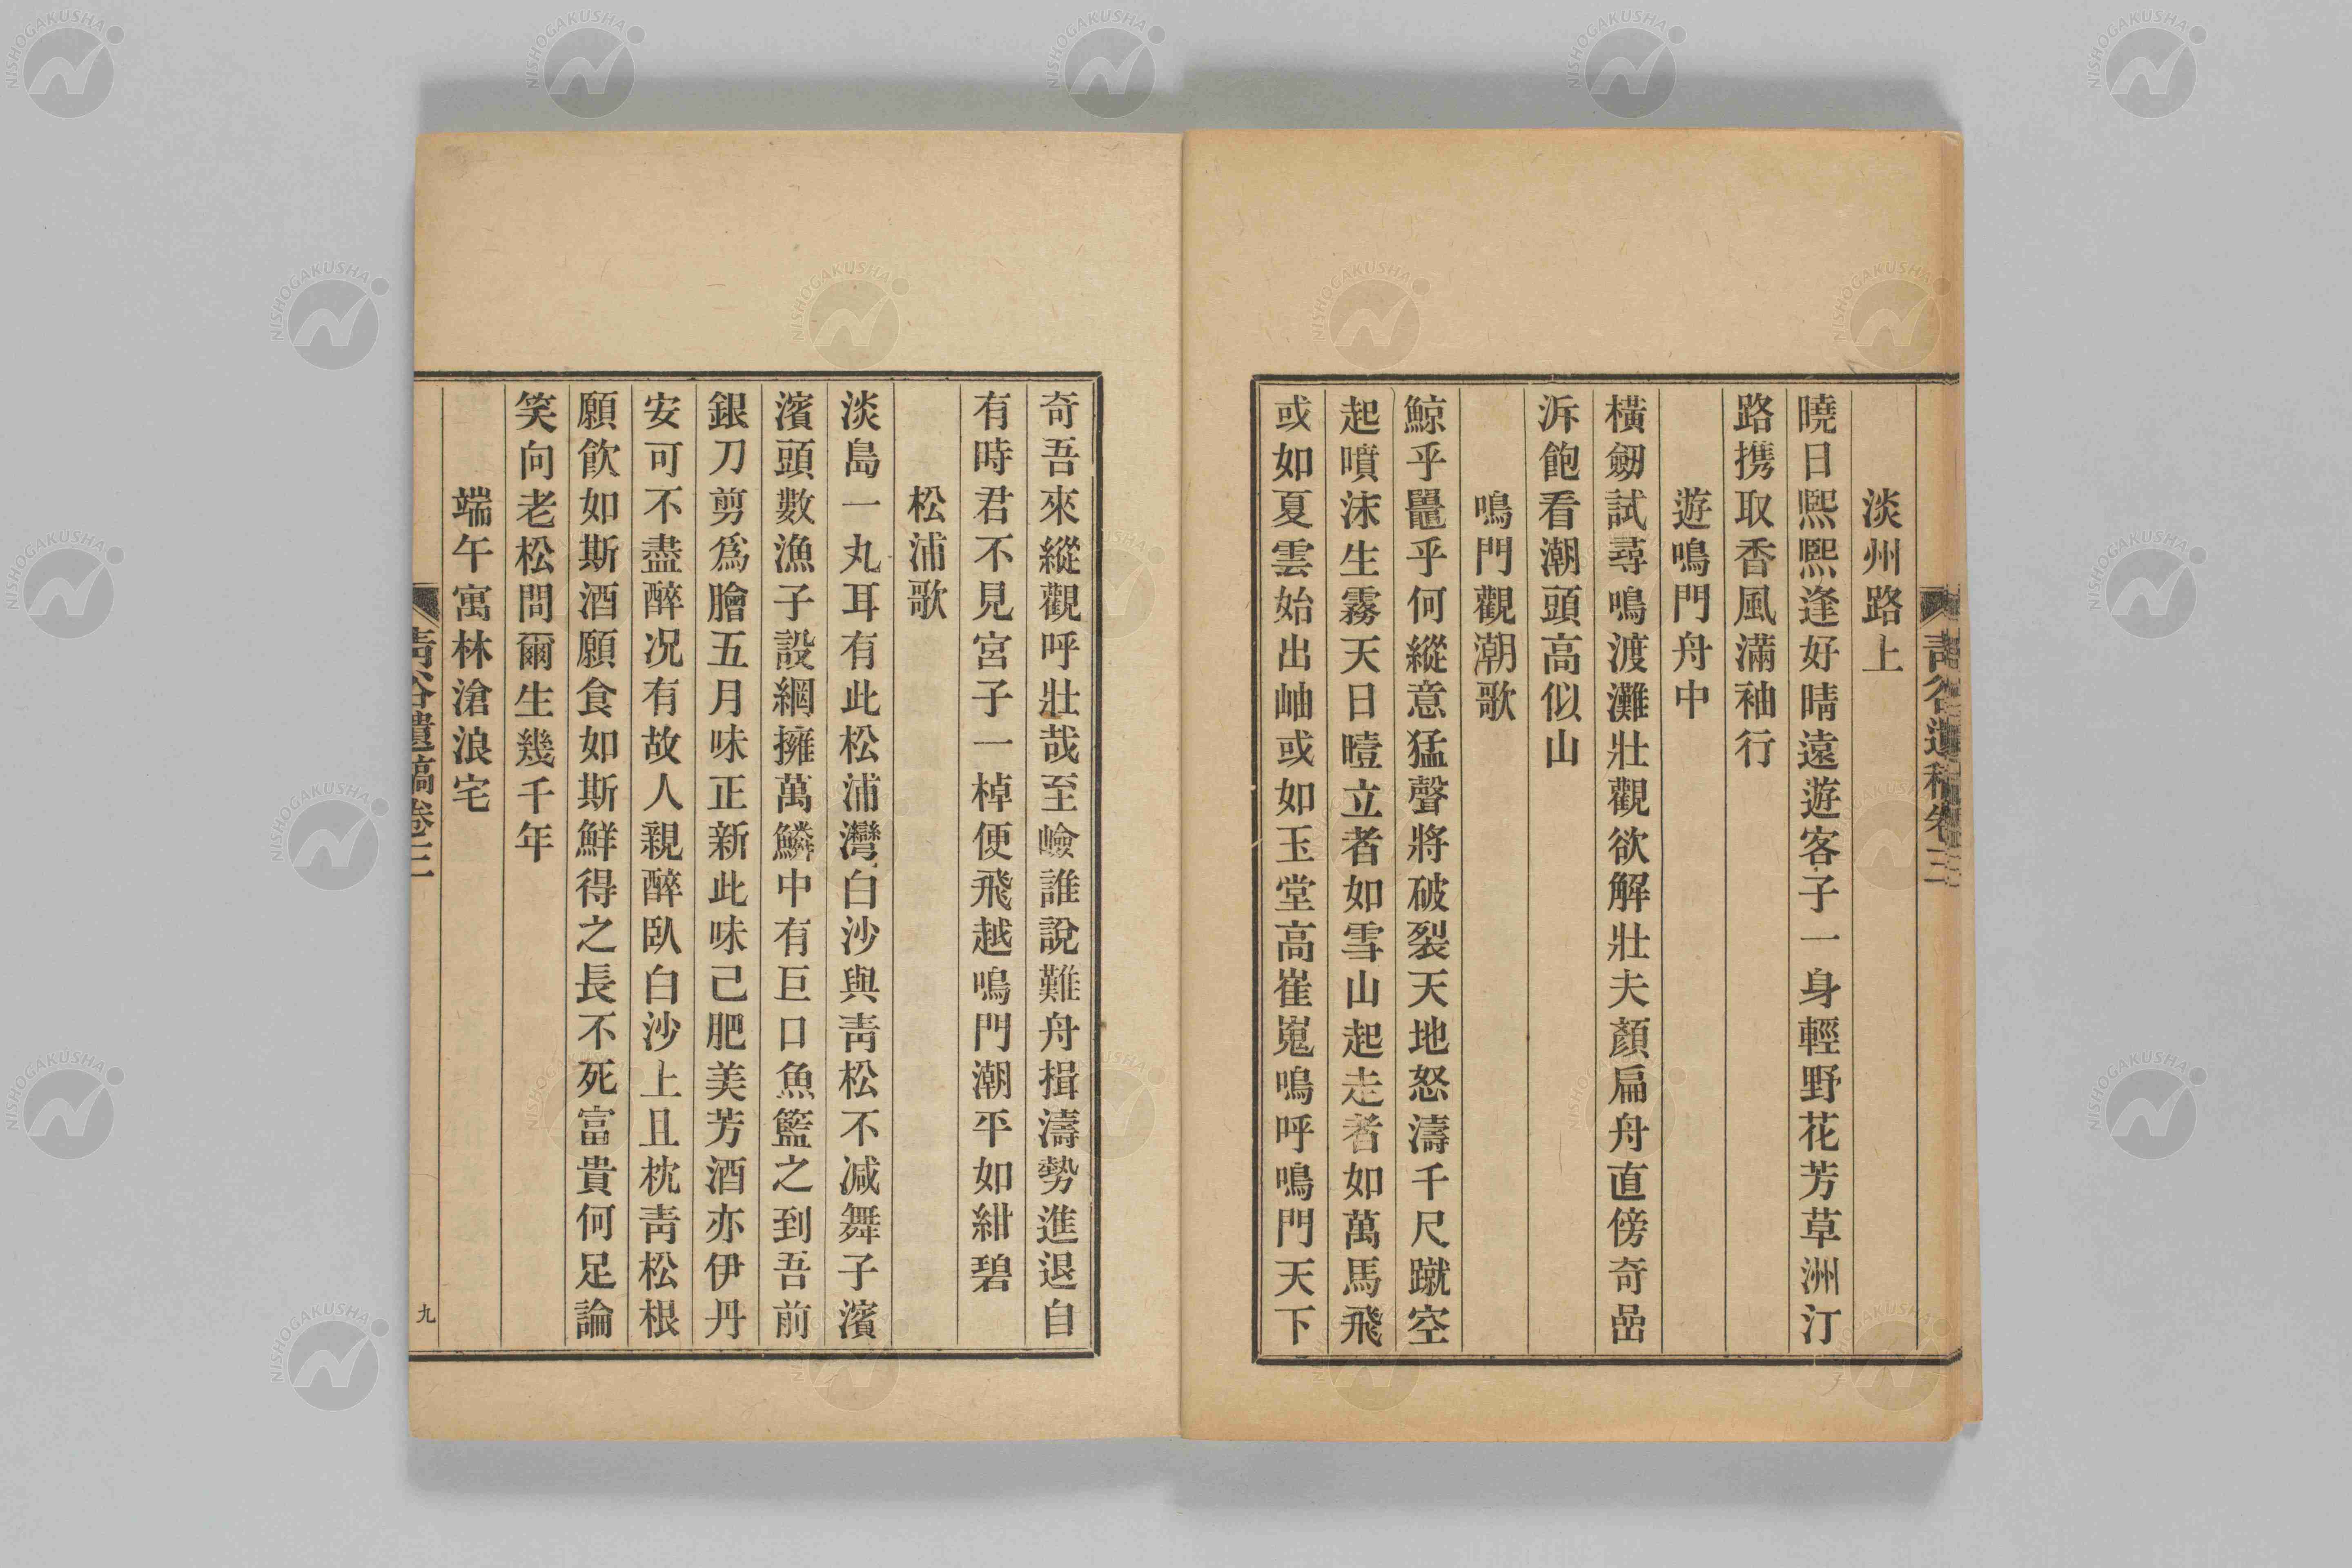 淡州路上
曉日熙熙逢好晴遠遊客子一身輕野花芳草洲汀
路携取香風滿袖行
遊鳴門舟中
橫劒試尋鳴渡灘壯觀欲解壯夫顏扁舟直傍奇嵒
泝飽看潮頭高似山
鳴門觀潮歌
鯨乎鼉乎何縱意猛聲將破裂天地怒濤千尺蹴空
起噴沫生霧天日曀立者如雪山起走者如萬馬飛
或如夏雲始出岫或如玉堂高崔嵬嗚呼鳴門天下
奇吾來縱觀呼壯哉至嶮誰說難舟揖濤勢進退自
有時君不見宮子一棹便飛越鳴門潮平如紺碧
松浦歌
淡島一丸耳有此松浦灣白沙與靑松不减舞子濱
濱頭數漁子設網擁萬鱗中有巨口魚籃之到吾前
銀刀剪爲膾五月味正新此味己肥美芳酒亦伊丹
安可不盡醉况有故人親醉臥白沙上且枕靑松根
願飮如斯酒願食如斯鮮得之長不死富貴何足論
笑向老松問爾生幾千年
端午寓林滄浪宅
靑谷遺稿卷三
九
NISHOGAKUSHA